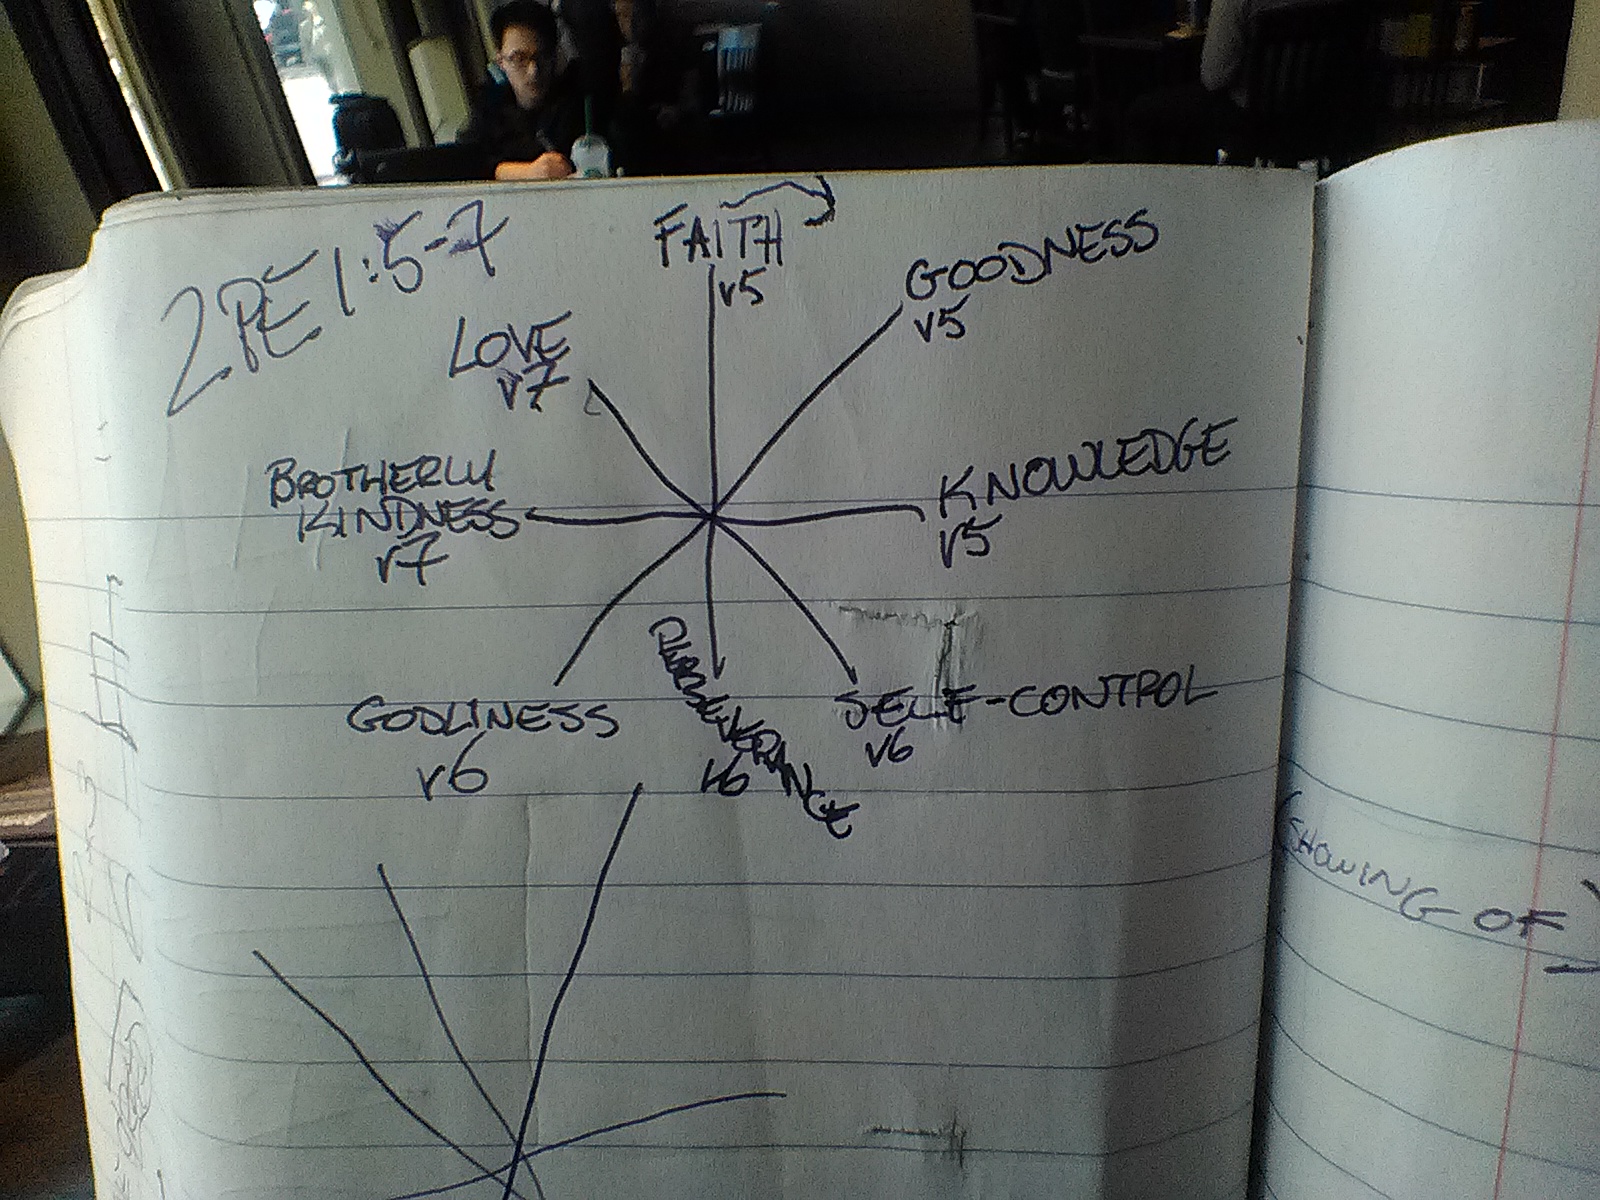 2PE 1:5-7
FAITH
v5
GOODNESS
v5
KNOWLEDGE
v5
SELF-CONTROL
v6
PERSEVERANCE
v6
GODLINESS
v6
BROTHERLY
KINDNESS
v7
LOVE
v7
(SHOWING OF